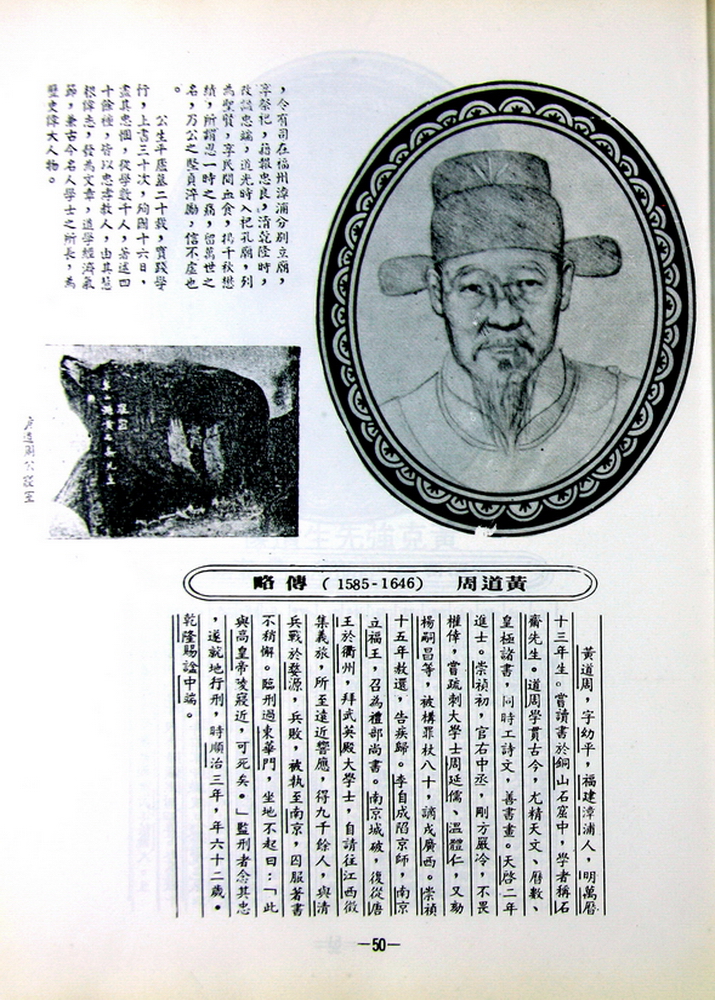 ，令有司在福州漳浦分別立廟，
享祭祀，藉報忠良，清乾隆時，
改謚忠端，道光時入祀孔廟，列
為聖賢，享民間血食，揭千秋懋
績，所謂忍一時之痛，留萬世之
名，乃公之堅貞淬勵，信不虛也
。
公生平廬墓二十載，實踐學
行，上書三十次，殉國十六日，
盡其忠悃，從學數千人，著述四
十餘種，皆以忠孝教人，由其慧
根偉志，發為文章，道學經濟氣
節，兼古今名人學士之所長，為
歷史偉大人物。
黃道周 (1585-1646) 傳略
黃道周，字幼平，福建漳浦人，明萬曆
十三年生。嘗讀書於銅山石室中，學者稱石
齋先生。道周學貫古今，尤精天文、曆數、
皇極諸書，同時工詩文，善書畫。天啓二年
進士。崇禎初，官右中丞，剛方嚴冷，不畏
權倖，嘗疏刺大學士周延儒、溫體仁，又劾
楊嗣昌等，被構罪杖八十，謫戍廣西。崇禎
十五年赦還，告疾歸。李自成陷京師，南京
立福王，召為禮部尚書。南京城破，復從唐
王於衢州，拜武英殿大學士，自請往江西徵
集義旅，所至遠近響應，得九千餘人，與清
兵戰於婺源，兵敗，被執至南京，囚服著書
不稍懈。臨刑過東華門，坐地不起曰：「此
與高皇帝陵寢近，可死矣。」監刑者念其忠
，遂就地行刑，時順治三年，年六十二歲。
乾隆賜謚中端。
—50—